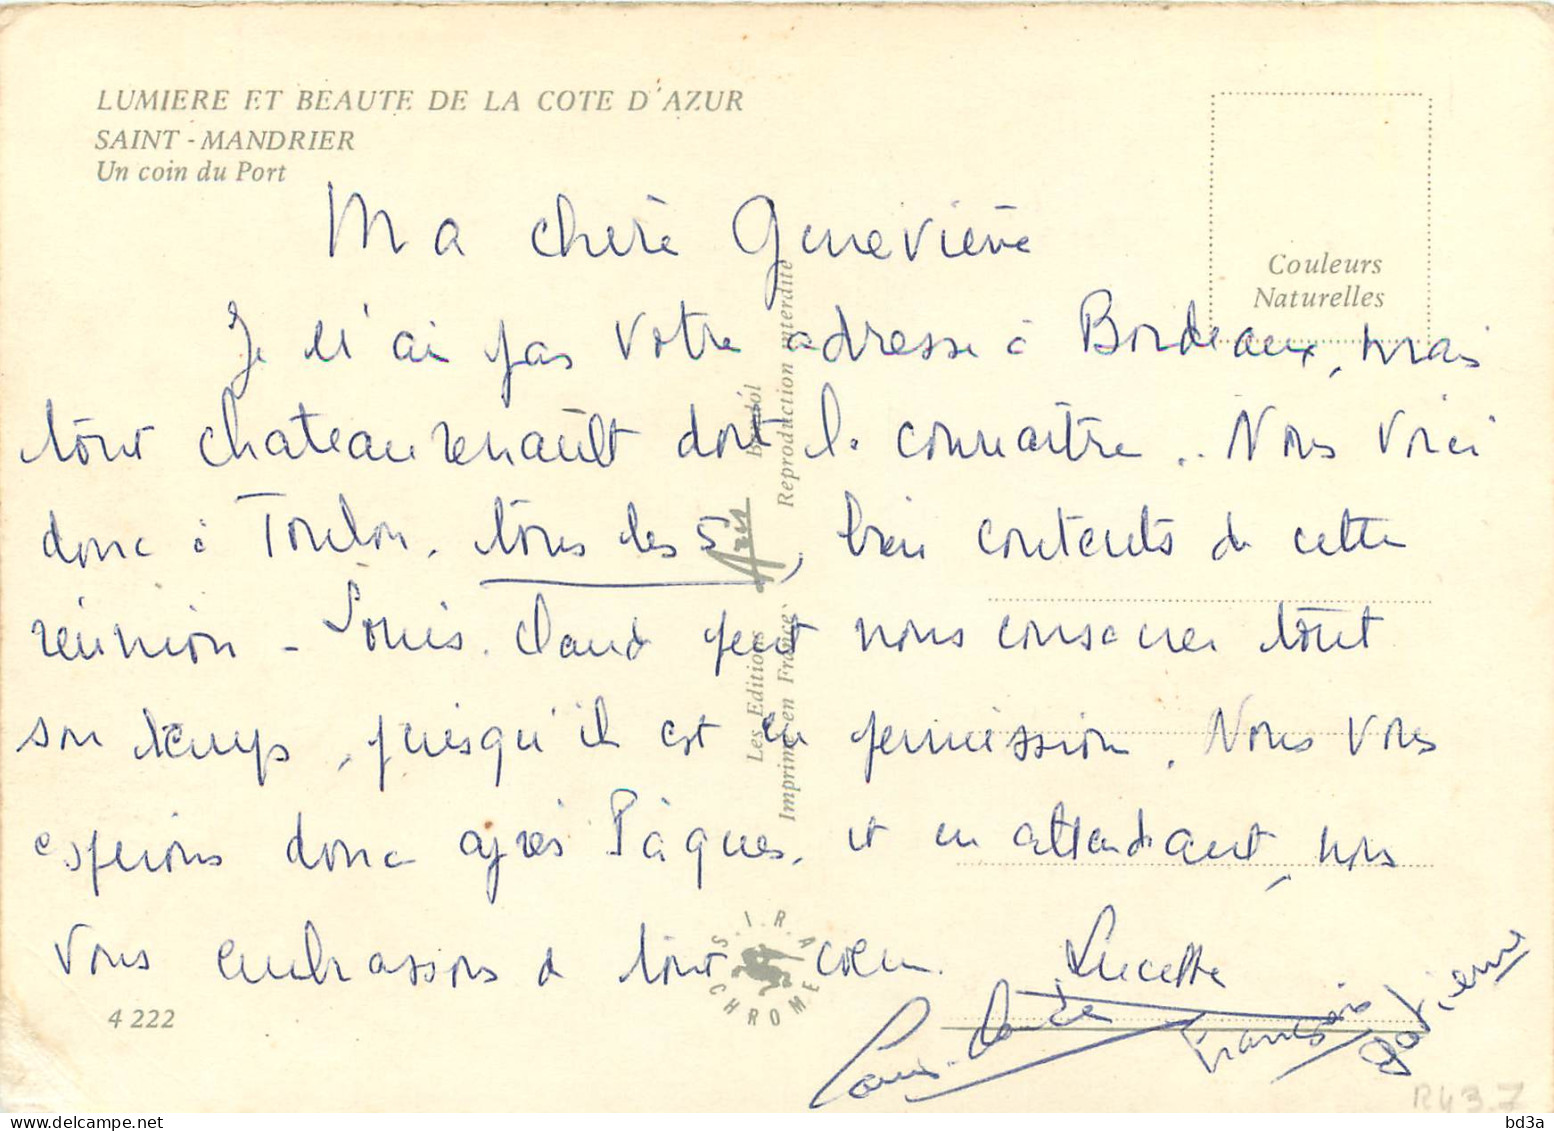 LUMIERE ET BEAUTE DE LA COTE D'AZUR
SAINT - MANDRIER
Un coin du Port
Couleurs
Naturelles
Ma chère Geneviève
Je n'ai pas votre adresse à Bordeaux, mais
tout chateaurenault doit la connaître.. Nous voici
donc à Toulon, tous les 5, bien contents de cette
réunion - Louis. Claude peut nous consacrer tout
son temps, puisqu'il est en permission. Nous vous
espérons donc après Pâques. et en attendant, nous
vous embrassons de tout coeur. Lucette
Louis-Claude François Gatienne
Les Editions Aris Bandol
Imprimé en France Reproduction interdite
S.I.R.A
CHROME
4 222
R43.7
bd3a